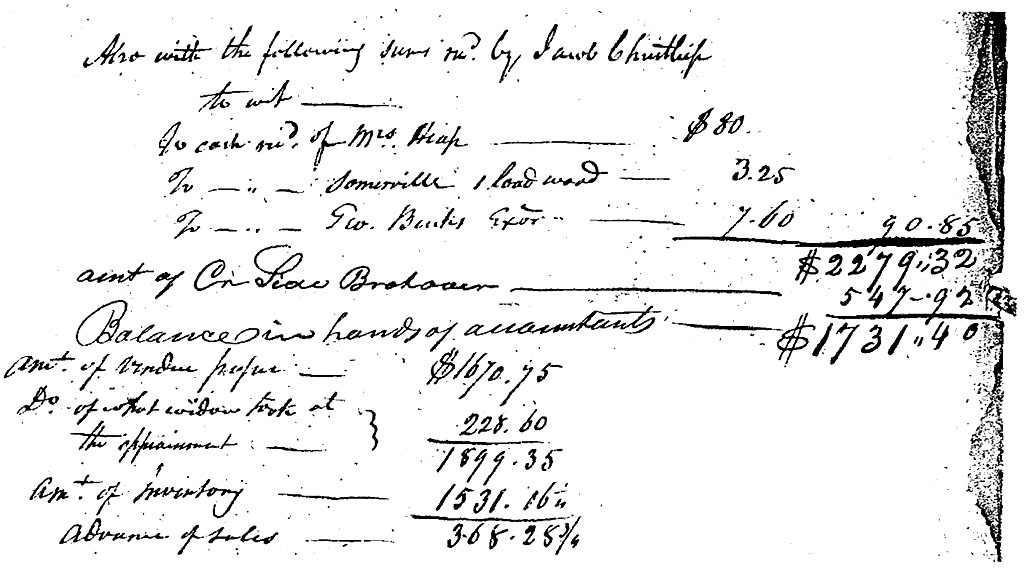 Also with the following sums recd. by Jacob Christlip
to wit
To cash recd. of Mrs. Heap $80.
To — „ — Somerville 1 load wood 3.25
To — „ — Geo. Exor. 7.60 90.85
$2279„32
amt of Cr Side Brot over 547-.92
Balance in hands of accountants $1731„40
Amt. of Vendue $1670.75
Do. of what widow took at
the appraisment } 228.60
1899.35
Amt. of Inventory 1531.16¼
Advance of sales 368.28¾